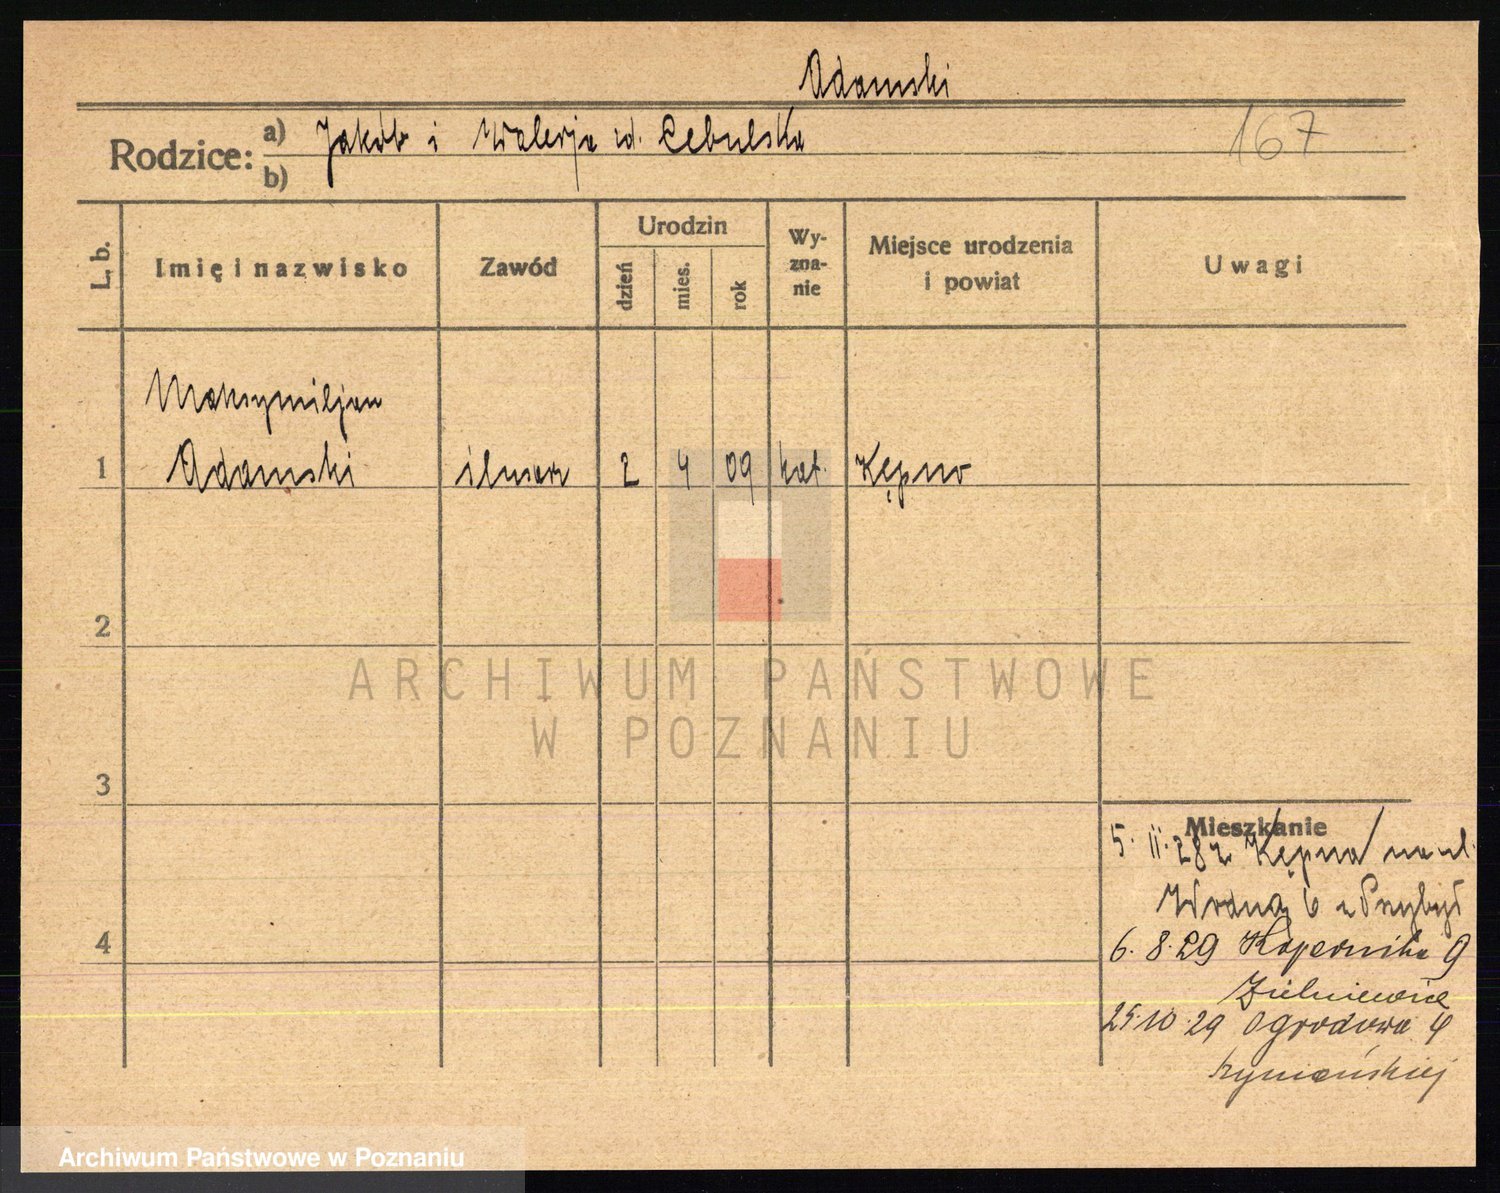 Adamski
Rodzice: a) Jakób i Walerja ur. Cebulska
b)
167
L. b.
Imię i nazwisko
Zawód
Urodzin
dzień
mies.
rok
Wy-
zna-
nie
Miejsce urodzenia
i powiat
Uwagi
Maksymiljan
1 Adamski ślusarz 2 4 09 kat. Kępno
2
ARCHIWUM PAŃSTWOWE
W POZNANIU
3
Mieszkanie
5. II. 28 z Kępna na ul.
Wodną 6 z Przybył
4
6. 8. 29 Kopernika 9
Zielniewicz
25.10.29 Ogrodowa 4
Archiwum Państwowe w Poznaniu